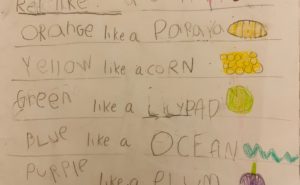 Red like a
Orange like a Papaya
Yellow like acORN
Green like a LiLYPAD
BLUE like a OCEAN
PURPLE like a PLUM